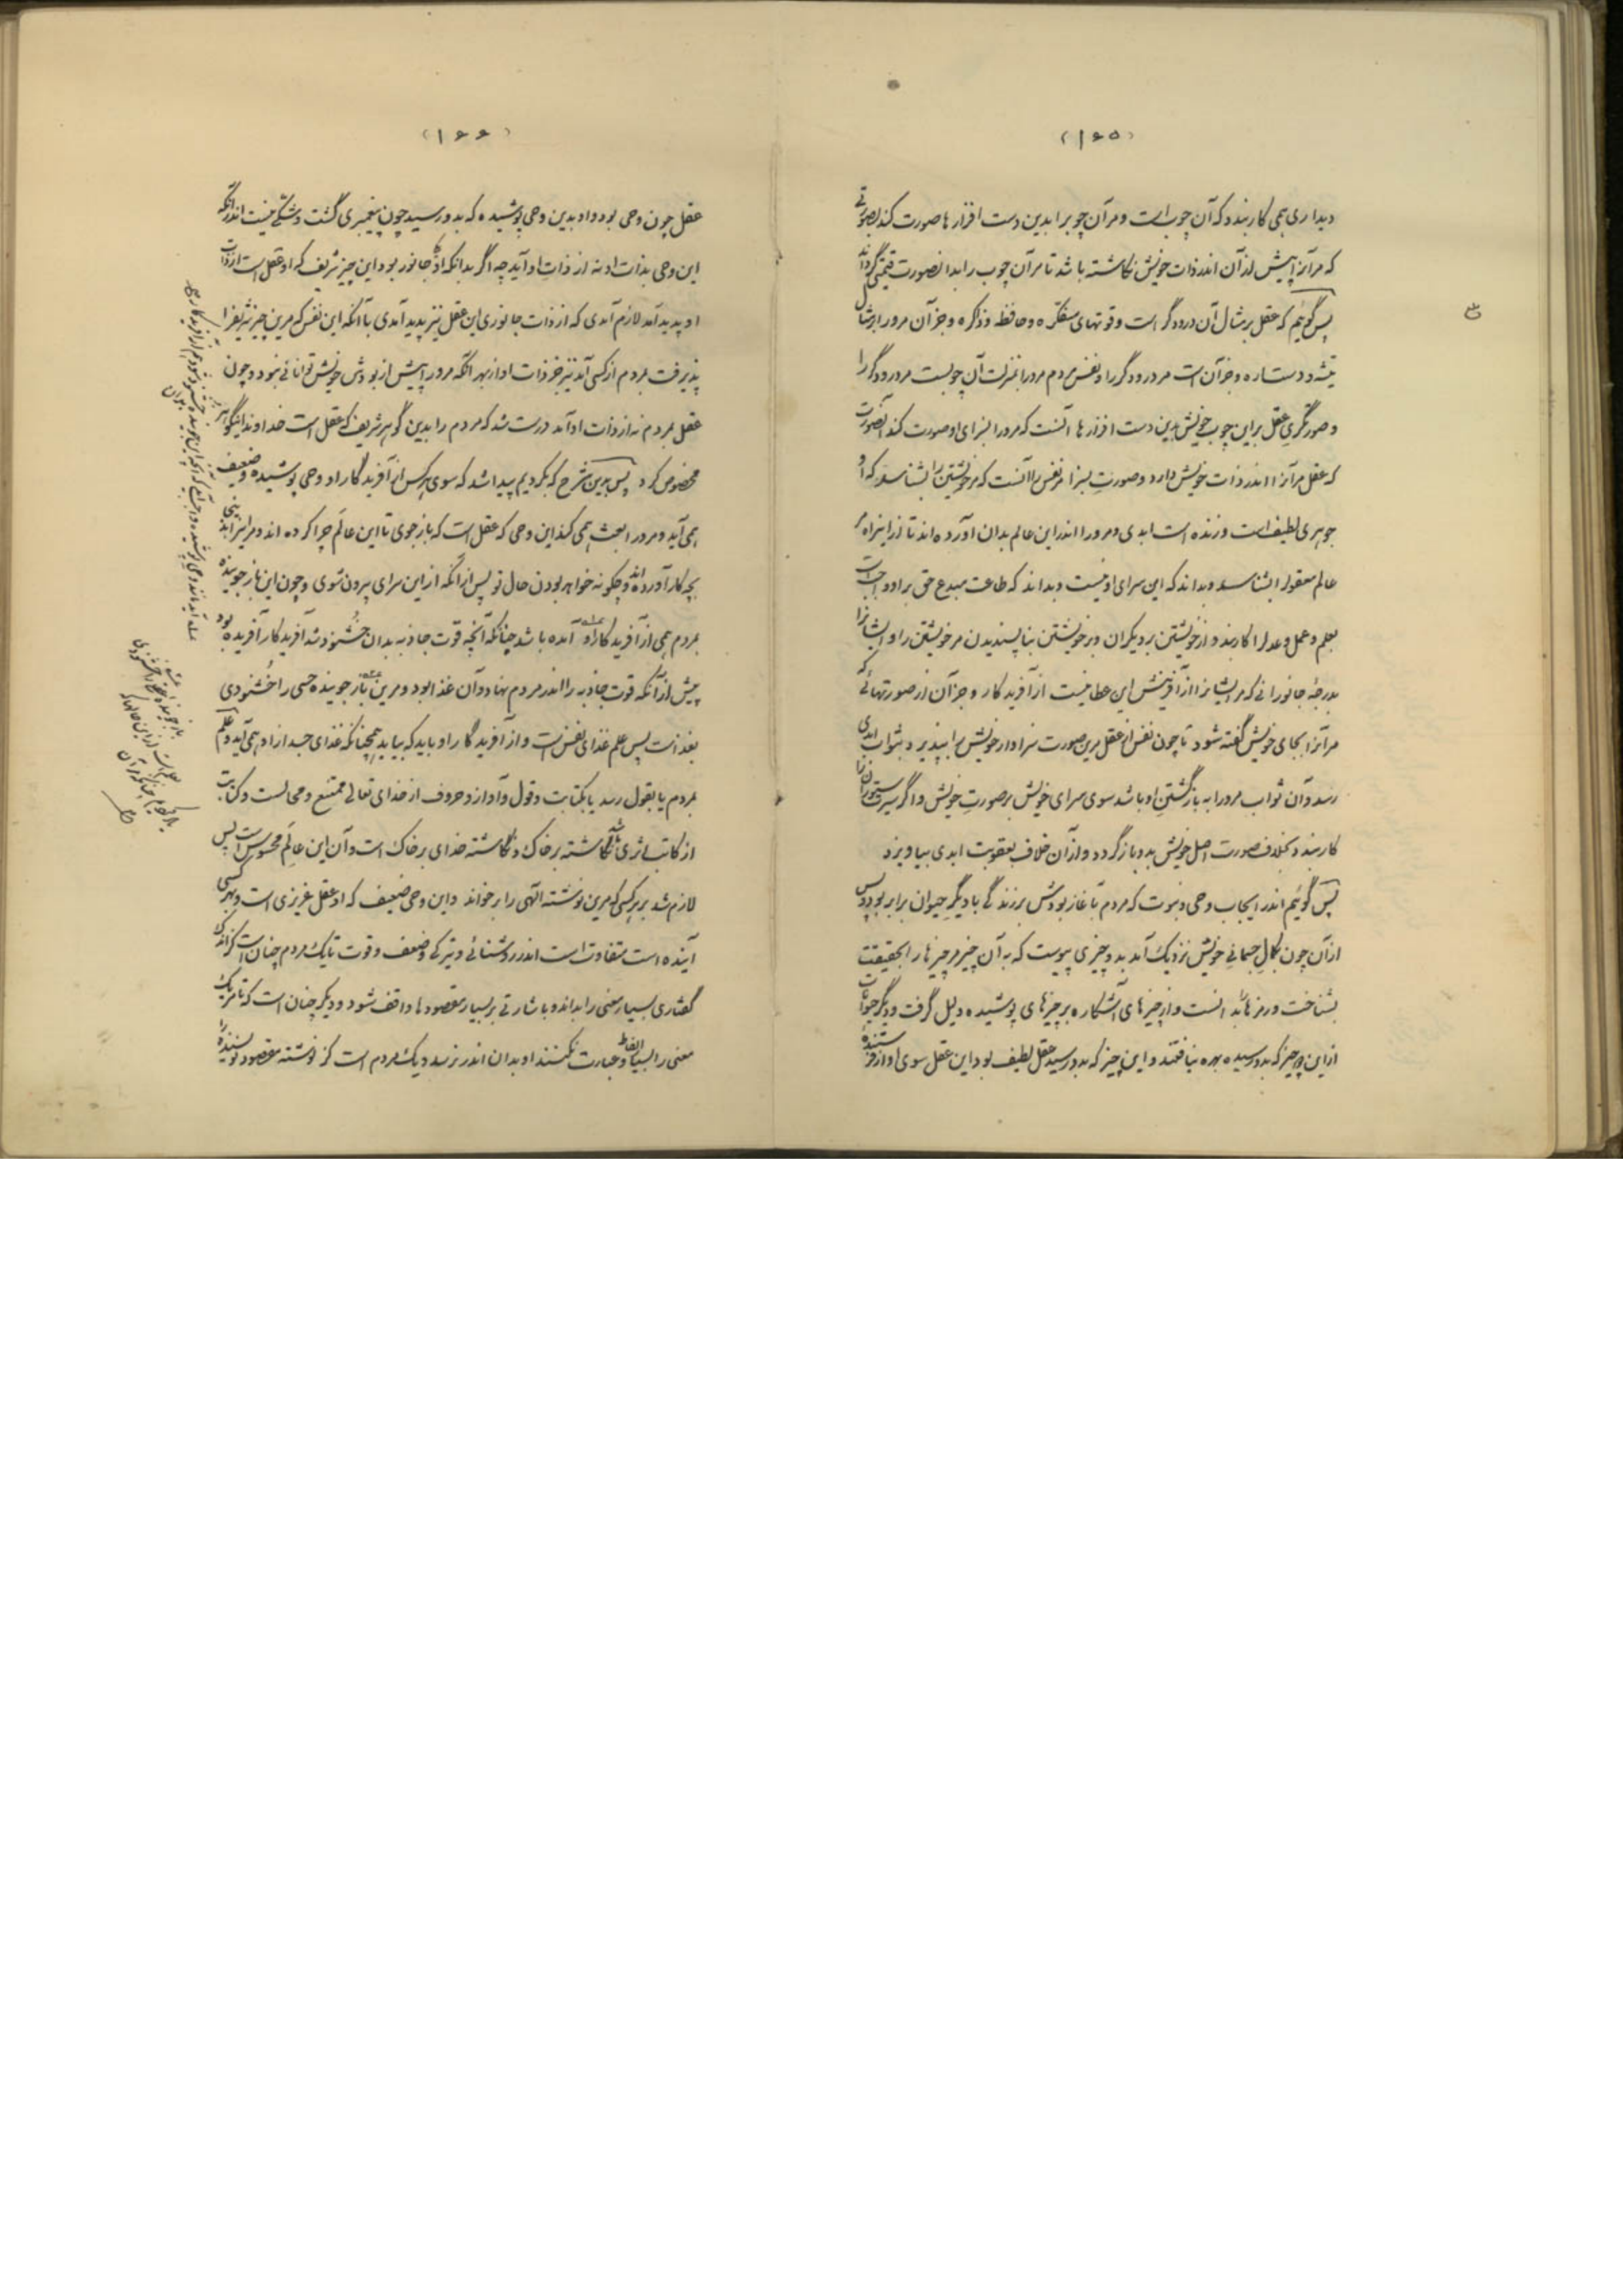 (۱۶۵)
دیداری همی کار بندد که آن چوب است و مر آن چوب را بدین دست افزارها صورت کند بصورتی
که مر آنرا پیش از آن اندر ذات خویش نگاشته باشد تا مر آن چوب را بدان صورت قیمتی گرداند
پس گوئیم که عقل بر مثال آن درودگر است و قوتهای متفکره و حافظه و ذاکره و جز آن مرورا بر مثال
تیشه و دست اره و جز آن است مر درودگر را و نفس مردم مرورا بمنزلت آن چوبست مر درودگر را
و صورتگری عقل بر این چوب خویش بدین دست افزارها آنست که مرورا بسزای او صورت کند آن صورت
که عقل مر آنرا اندر ذات خویش دارد و صورت بسزا مر نفس را آنست که مر خویشتن را بشناسد که او
جوهری لطیف است و زنده است ابدی و مرورا اندر این عالم بدان آورده اند تا از این راه مر
عالم معقول را بشناسد و بداند که این سرای او نیست و بداند که طاعت مبدع حق بر او واجب است
بعلم و عمل و عدل را کار بندد از خویشتن بر دیگران و بر خویشتن بنا پسندیدن مر خویشتن را و ایشانرا
بدرجهٔ جانورانی که مر ایشانرا از آفرینش این عطا نیست از آفریدگار و جز آن از صورتهائی که
مر آنرا بجای خویش گفته شود تا چون نفس از عقل مرین صورت سزاوار خویش را بپذیرد بثواب ابدی
رسد و آن ثواب مرورا به بازگشتن او باشد سوی سرای خویش بر صورت خویش و اگر سیرت ستورانرا
کار بندد بخلاف صورت اصل خویش بدو باز گردد و از آن خلاف بعقوبت ابدی بیاویزد
پس گوئیم اندر ایجاب وحی و نبوت که مردم بآغاز بودش بر زندگی با دیگر حیوان برابر بود و پس
از آن چون بکمال جسمانی خویش نزدیک آمد بدو چیزی پیوست که به آن چیز مر چیزها را بحقیقت
بشناخت و رمزها بدانست و از چیزهای آشکاره بر چیزهای پوشیده دلیل گرفت و دیگر حیوانات
از این چیز که بدو رسیده بهره نیافتند و این چیز که بدو رسید عقل لطیف بود این عقل سوی او از فرستندهٔ
(۱۶۶)
عقل چون وحی بود و او بدین وحی پوشیده که بدو رسید چون پیغمبری گشت و شکی نیست اندر آنکه
این وحی بذات او نه از ذات او آید چه اگر بدانکه او جانور بود این چیز شریف که او عقل است از ذات
او پدید آمد لازم آمدی که از ذات جانوری این عقل نیز پدید آمدی با آنکه این نفس که مرین چیز شریف را
پذیرفت بمردم از کسی آمد نیز جز ذات او از بهر آنکه مرورا پیش از بودش خویش توانائی نبود و چون
عقل بمردم نه از ذات او آمد درست شد که مردم را بدین گوهر شریف که عقل است خداوند این گوهر
مخصوص کرد پس بدین شرح که بکردیم پیدا شد که سوی هر کس از آفریدگار او وحی پوشیده و ضعیف
همی آید و مرورا بعث همی کند این وحی که عقل است که باز جوی تا این عالم چرا کرده اند و مر ترا بدینجا
بچه کار آورده اند و چگونه خواهد بودن حال تو پس از آنکه از این سرای بیرون شوی و چون این باز جوینده
بمردم همی از آفریدگار او آمده باشد چنانکه آنچه قوت جاذبه بدان خشنود شد آفریدگار آفریده بود
پیش از آنکه قوت جاذبه را اندر مردم نهاد و آن غذا بود و مرین باز جوینده حسی را خشنودی
بغذاست پس علم غذای نفس است و از آفریدگار او باید که بیاید همچنانکه غذای جسد از او همی آید و علم
بمردم یا بقول رسد یا بکتابت و قول و آواز و حروف از خدای تعالی ممتنع و محالست و کتابت
از کاتب اثری باشد نگاشته بر خاک و نگاشته خدای بر خاک است و آن این عالم محسوس است پس
لازم شد بر هر کسی که مرین نوشته الهی را بر خواند و این وحی ضعیف که او عقل غریزی است و بهر کسی
آینده است متفاوت است اندر روشنائی و تیرگی و ضعف و قوت تا یک مردم چنان است کز اندک
گفتاری بسیار معنی را بداند و باشارتی بر بسیار مقصودها واقف شود و دیگر چنان است که تا مر یک
معنی را بسیار الفاظ و عبارت نکنند او بدان اندر نرسد و یک مردم است کز نوشته مقصود نویسنده را